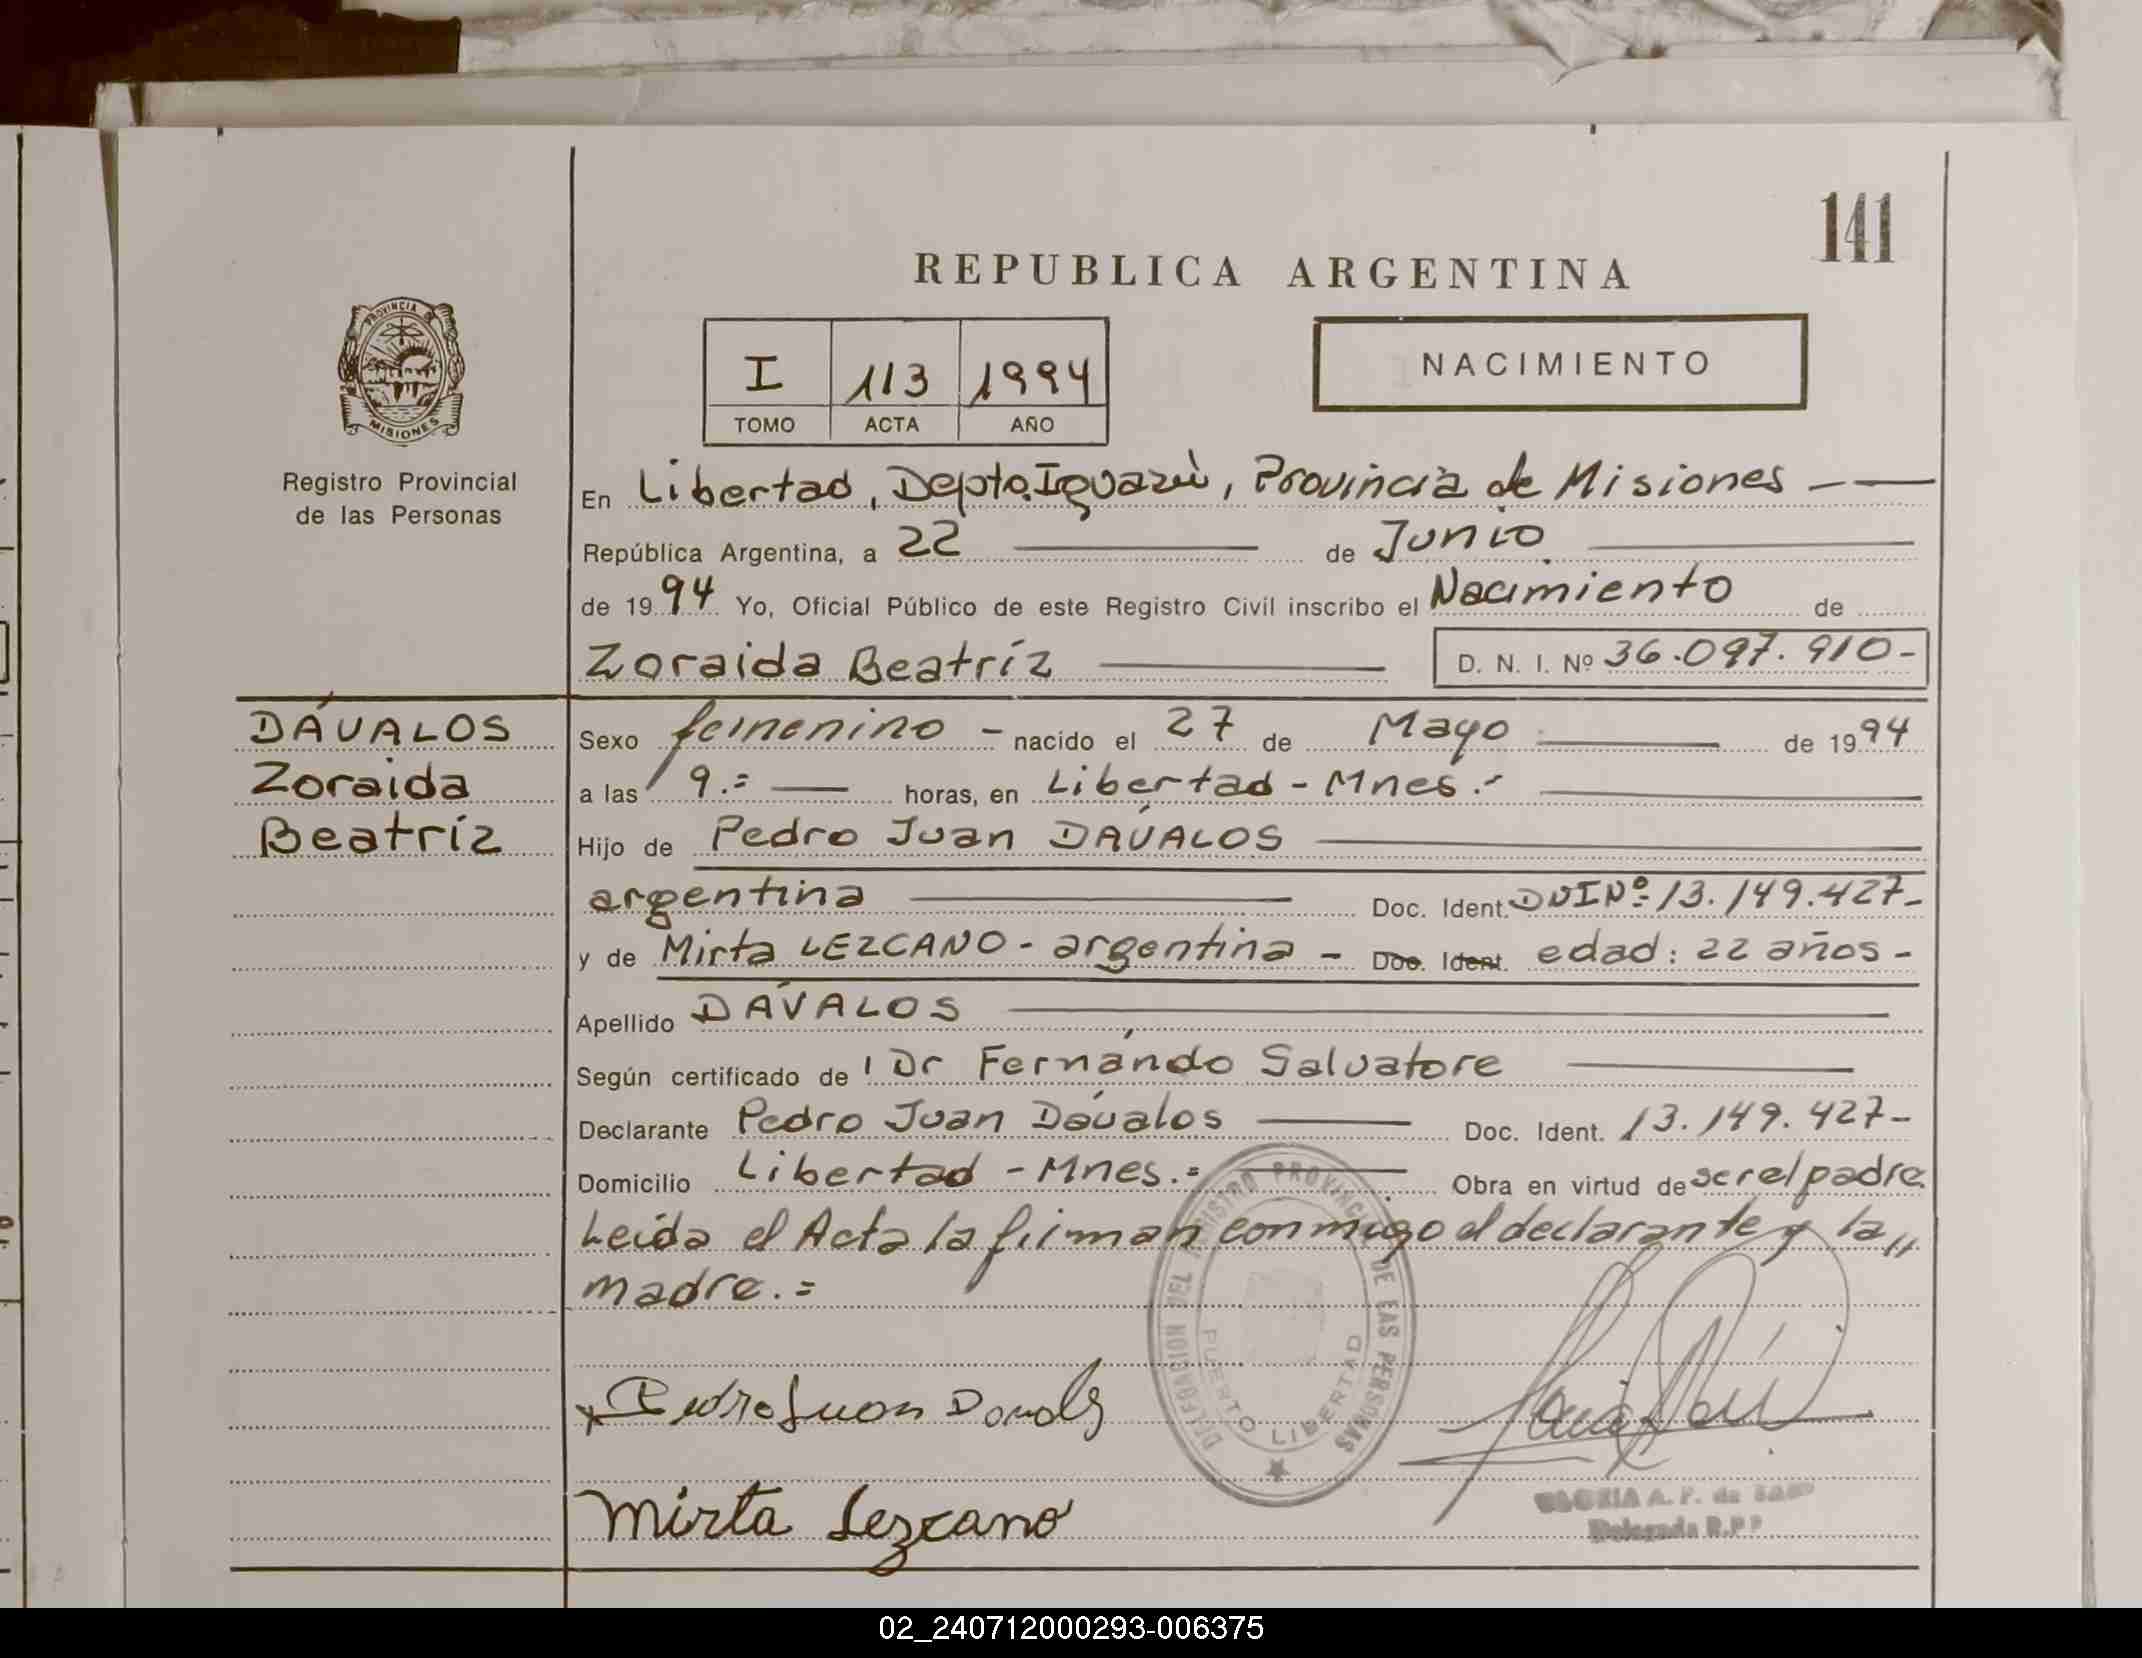 141
REPUBLICA ARGENTINA
PROVINCIA DE
MISIONES
Registro Provincial
de las Personas
I 113 1994
TOMO ACTA AÑO
NACIMIENTO
En Libertad, Depto. Iguazú, Provincia de Misiones
República Argentina, a 22 de Junio
de 1994 Yo, Oficial Público de este Registro Civil inscribo el Nacimiento de
Zoraida Beatríz D. N. I. Nº 36.097.910-
DÁVALOS
Zoraida
Beatríz
Sexo femenino - nacido el 27 de Mayo de 1994
a las 9.= horas, en Libertad - Mnes.-
Hijo de Pedro Juan DÁVALOS
argentina Doc. Ident. DNI Nº: 13.149.427-
y de Mirta LEZCANO - argentina - Doc. Ident. edad: 22 años -
Apellido DÁVALOS
Según certificado de Dr Fernándo Salvatore
Declarante Pedro Juan Dávalos Doc. Ident. 13.149.427-
Domicilio Libertad - Mnes.= Obra en virtud de ser el padre.
Leída el Acta la firman conmigo el declarante y la,,
madre.=
DELEGACION DEL REGISTRO PROVINCIAL DE LAS PERSONAS
PUERTO LIBERTAD
Pedro Juan Davals
Mirta Lezcano
GLORIA A. F. de
Delegada R.P.P
02_240712000293-006375